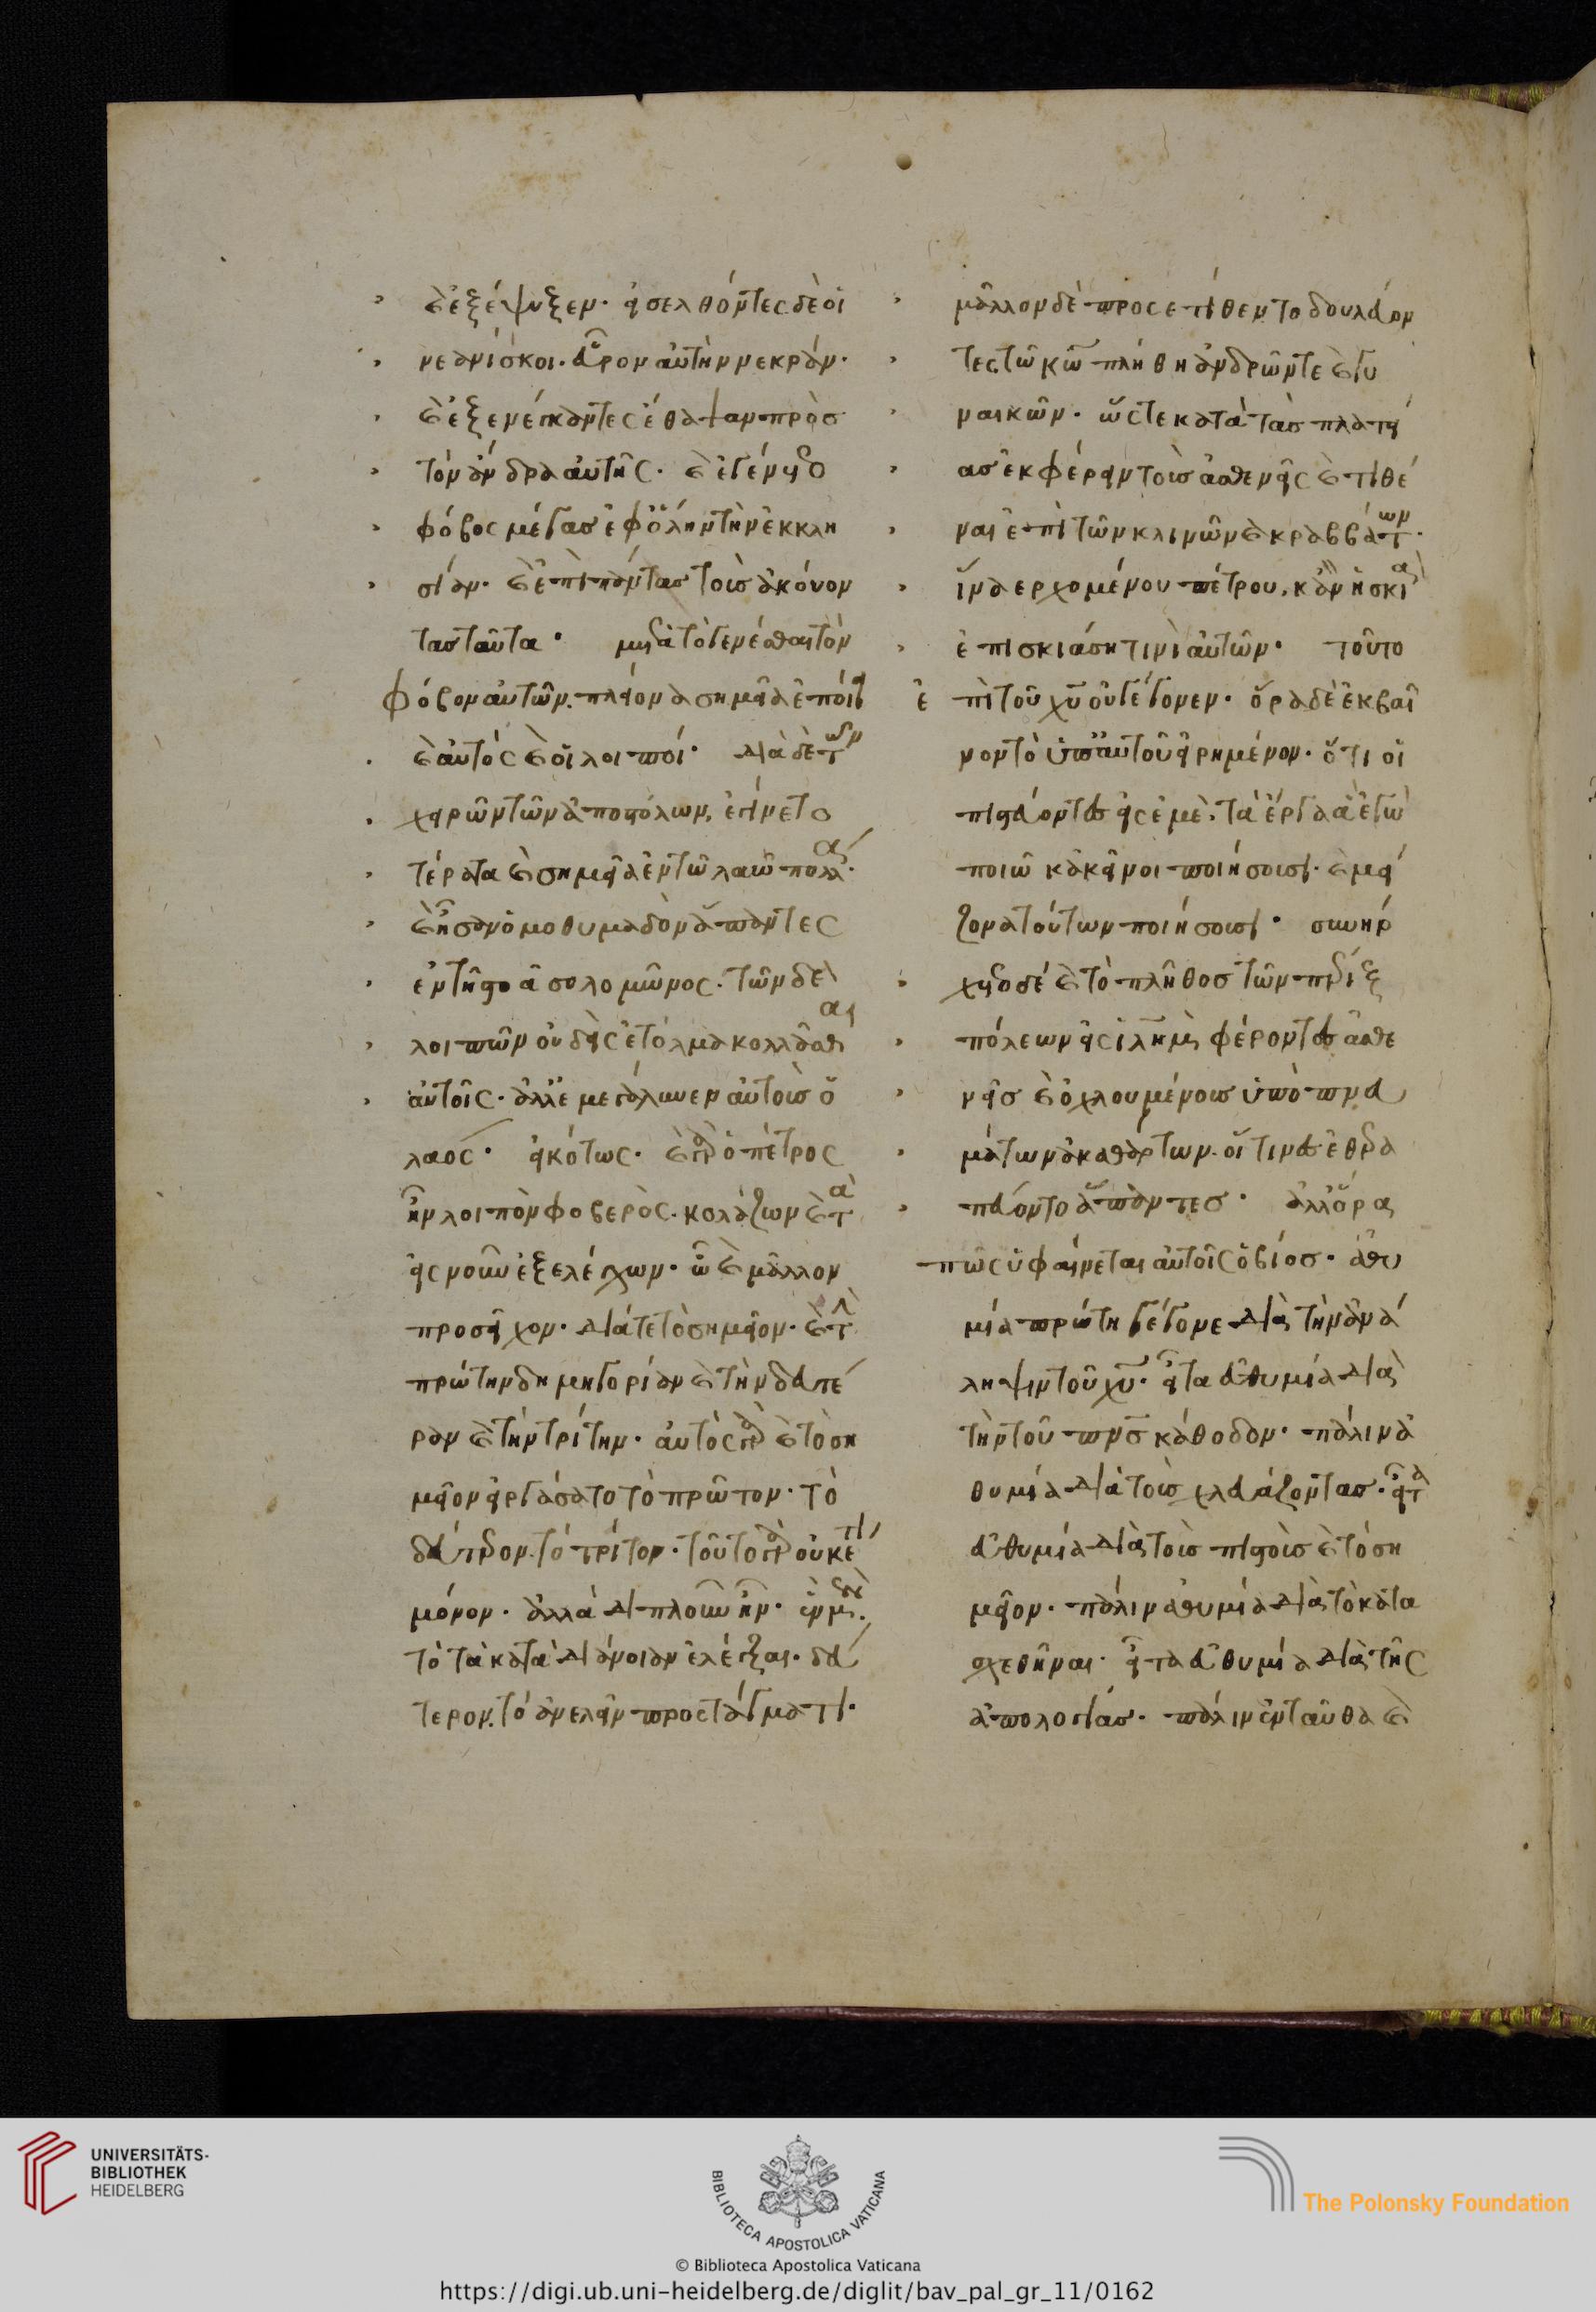 καὶ ἐξέψυξεν· εἰσελθόντες δὲ οἱ
νεανίσκοι· εὗρον αὐτὴν νεκράν·
καὶ ἐξενέγκαντες ἔθαψαν πρὸς
τὸν ἄνδρα αὐτῆς· καὶ ἐγένετο
φόβος μέγας ἐφ' ὅλην τὴν ἐκκλη
σίαν· καὶ ἐπὶ πάντας τοὺς ἀκούον
τας ταῦτα· μετὰ τὸ γενέσθαι τὸν
φόβον αὐτῶν, πλείονα σημεῖα ἐποίει
καὶ αὐτὸς καὶ οἱ λοιποί· διὰ δὲ τῶν
χειρῶν τῶν ἀποστόλων, ἐγίνετο
τέρατα καὶ σημεῖα ἐν τῶ λαῶ πολλά·
καὶ ἦσαν ὁμοθυμαδὸν ἅπαντες
ἐν τῇ στοᾶ σολομῶνος· τῶν δὲ
λοιπῶν οὐδεὶς ἐτόλμα κολλᾶσθαι
αὐτοῖς· ἀλλ' ἐμεγάλυνεν αὐτοὺς ὁ
λαός· εἰκότως· καὶ γὰρ ὁ πέτρος
ἦν λοιπὸν φοβερὸς· κολάζων καὶ τὰ
εἰς νοῦν ἐξελέγχων· ὧ καὶ μᾶλλον
προσεῖχον· διά τε τὸ σημεῖον· καὶ τὴν
πρώτην δημηγορίαν καὶ τὴν δευτέ
ραν καὶ τὴν τρίτην· αὐτὸς γὰρ καὶ τὸ ση
μεῖον εἰργάσατο τὸ πρῶτον· τὸ
δεύτερον· τὸ τρίτον· τοῦτο γὰρ οὐκέτι
μόνον· ἀλλὰ διπλοῦν ἦν· ἓν μὲν
τὸ τὰ κατὰ διάνοιαν ἐλέγξαι· δεύ
τερον, τὸ ἀνελεῖν προστάγματι·
μᾶλλον δὲ προσετίθεντο δουλεύον
τες τῶ κῶ πλήθη ἀνδρῶν τε καὶ γυ
ναικῶν· ὥστε κατὰ τὰς πλατεί
ας ἐκφέρειν τοὺς ἀσθενεῖς καὶ τιθέ
ναι ἐπὶ τῶν κλινῶν καὶ κραββάτων·
ἵνα ερχομένου πέτρου, κἂν ἡ σκιὰ
ἐπισκιάση τινὶ αὐτῶν· τοῦτο
ἐπὶ τοῦ χυ οὐ γέγονεν· ὅρα δὲ ἐκβαῖ
νον τὸ ὑπ' αὐτοῦ εἰρημένον· ὅτι οἱ
πιστεύοντες εἰς ἐμὲ, τὰ ἔργα ἃ ἐγὼ
ποιῶ κἀκεῖνοι ποιήσουσι· καὶ μεί
ζονα τούτων ποιήσουσι· συνήρ
χετο δέ καὶ τὸ πλῆθος τῶν πέριξ
πόλεων εἰς ἱλημ φέροντες ἀσθε
νεῖς καὶ ὀχλουμένους ὑπὸ πνευ
μάτων ἀκαθάρτων· οἵτινες ἐθερα
πεύοντο ἅπαντες· ἀλλ' ὅρα
πῶς ὑφαίνεται αὐτοῖς ὁ βίος· ἀθυ
μία πρώτη γέγονε διὰ τὴν ἀνά
ληψιν τοῦ χυ· εἶτα εὐθυμία διὰ
τὴν τοῦ πνς κάθοδον· πάλιν ἀ
θυμία διὰ τοὺς χλευάζοντας· εἶτα
εὐθυμία διὰ τοὺς πιστοὺς καὶ τὸ ση
μεῖον· πάλιν ἀθυμία διὰ τὸ κατα
σχεθῆναι· εἶτα εὐθυμία διὰ τῆς
ἀπολογίας· πάλιν ἐνταῦθα καὶ
UNIVERSITÄTS-
BIBLIOTHEK
HEIDELBERG
BIBLIOTECA APOSTOLICA VATICANA
The Polonsky Foundation
© Biblioteca Apostolica Vaticana
https://digi.ub.uni-heidelberg.de/diglit/bav_pal_gr_11/0162